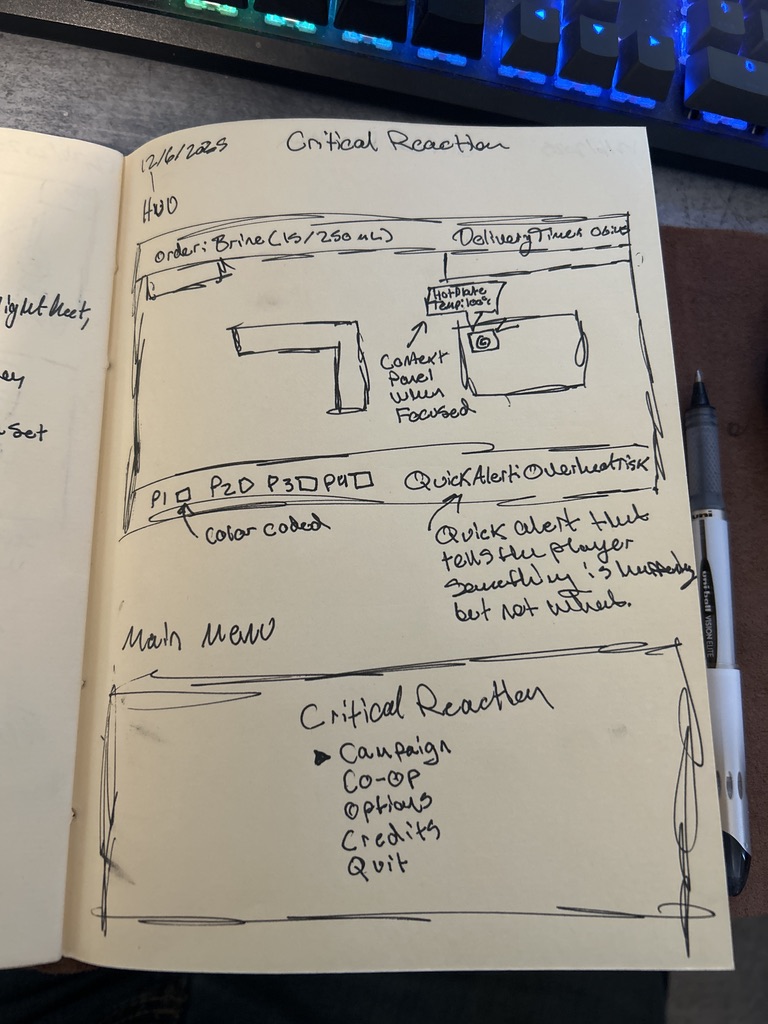 12/6/2025
Critical Reaction
HUD
Order: Brine (15/250mL)
Delivery Timer
Hot Plate
Temp: 100%
Context
Panel
when
Focused
P1 P2 P3 P4
Quick Alert: Overheat Risk
Color coded
Quick alert that
tells the player
something is happening
but not what.
Main Menu
Critical Reaction
Campaign
Co-op
Options
Credits
Quit
ight
ey
Set
uni-ball VISION ELITE